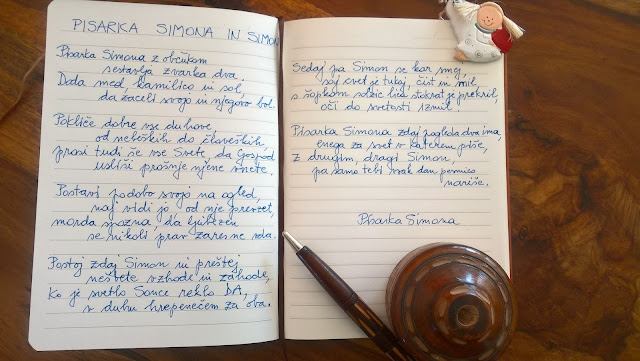 PISARKA SIMONA IN SIMON
Pisarka Simona z občutkom
sestavlja zvarka dva.
Doda med kamilico in sol,
da zaceli svojo in njegovo bol.
Pokliče dobre vse duhove,
od nebeških do človeških,
prosi tudi še vse Svete, da Gospod
usliši prošnje njene vnete.
Postavi podobo svojo na ogled,
naj vidi jo od nje prevzet,
morda spozna, da ljubezen
se nikoli prav zares ne vda.
Postoj zdaj Simon in preštej
neštete vzhode in zahode,
ko je svetlo Sonce reklo DA,
v duhu hrepenečem za oba.
Sedaj pa Simon se kar smej,
saj svet je tukaj, čist in mil,
s šopkom solzic lica stokrat je prekril,
oči do svetosti izmil.
Pisarka Simona zdaj zagleda dva ima,
enega za svet v katerem piše,
z drugim, dragi Simon,
pa samo tebi vsak dan pesmico
nariše.
Pisarka Simona